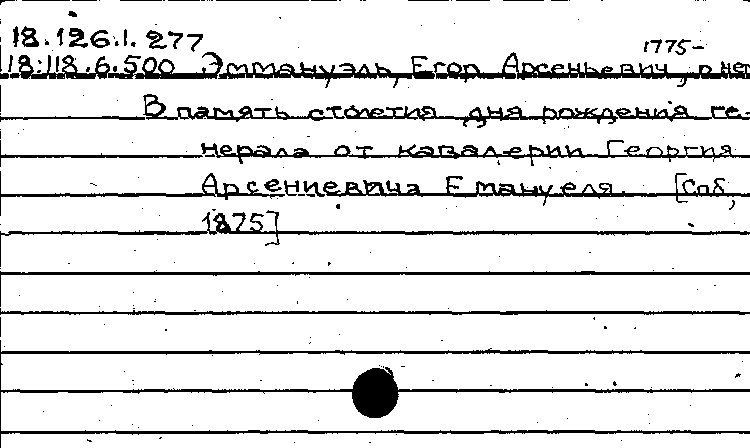 18.126.1.277
1775-
18:118.6.500 Эммануэль, Егор Арсеньевич, о нем
В память столетия дня рождения ге-
нерала от кавалерии Георгия
Арсениевича Емануеля. [Спб,
1875]